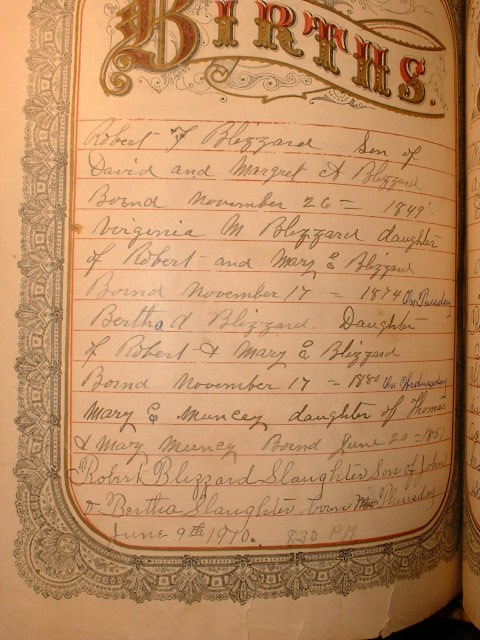 BIRTHS.
Robert F Blizzard Son of
David and Margret A Blizzard
Bornd November 26 = 1849
Virginia M Blizzard daughter
of Robert and Mary E Blizzard
Bornd November 17 = 1874 On Tuesday
Bertha A Blizzard. Daughter
of Robert & Mary E Blizzard
Bornd November 17 = 1880 On Wednesday
Mary E Muncey daughter of Thomas
& Mary Muncy Bornd June 20 = 185
Robert Blizzard Slaughter Son of John
& Bertha Slaughter born Thursday
June 9th 1910. 830 PM